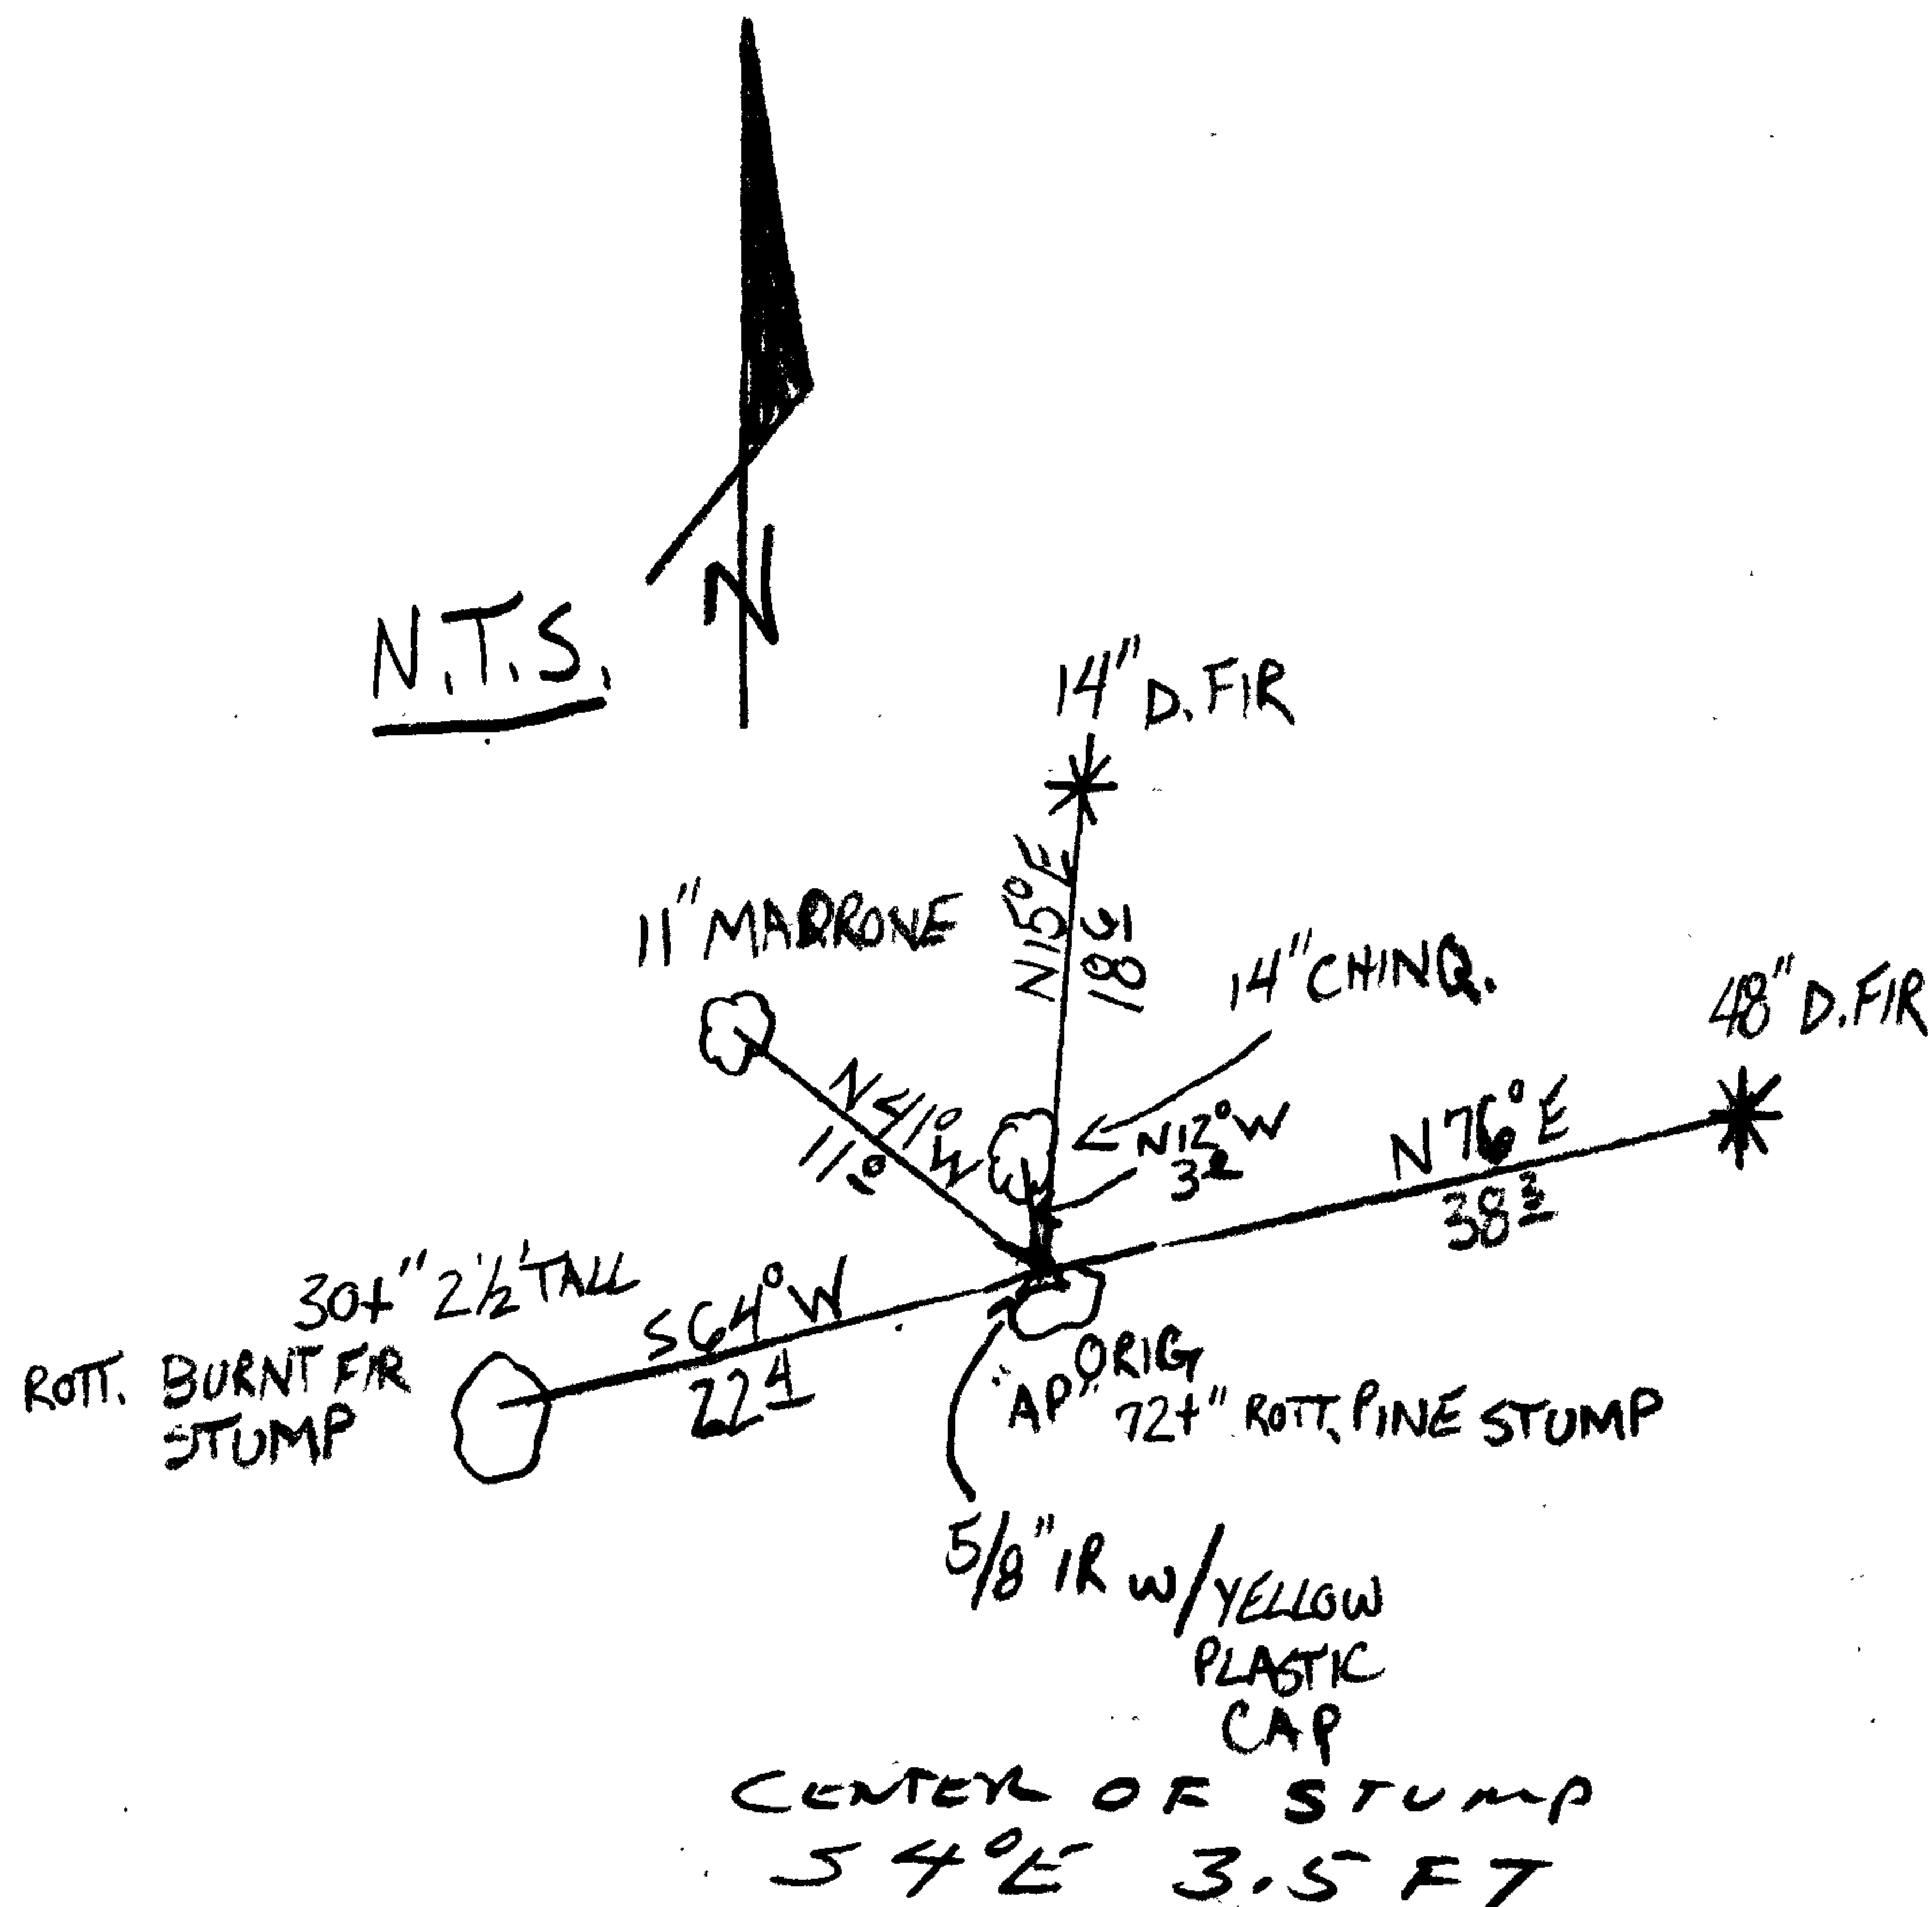 N
N.T.S.
14" D. FIR
N15°E
11" MADRONE
14" CHINQ.
48" D. FIR
N41°W
11.0
N12°W
3<u>2</u>
N76°E
38<u>3</u>
30+" 2½' TALL
ROTT. BURNT FIR
STUMP
S64°W
22<u>4</u>
ORIG
"AP" 72+" ROTT. PINE STUMP
5/8" IR W/YELLOW
PLASTIC
CAP
CENTER OF STUMP
S 4°E 3.5 FT